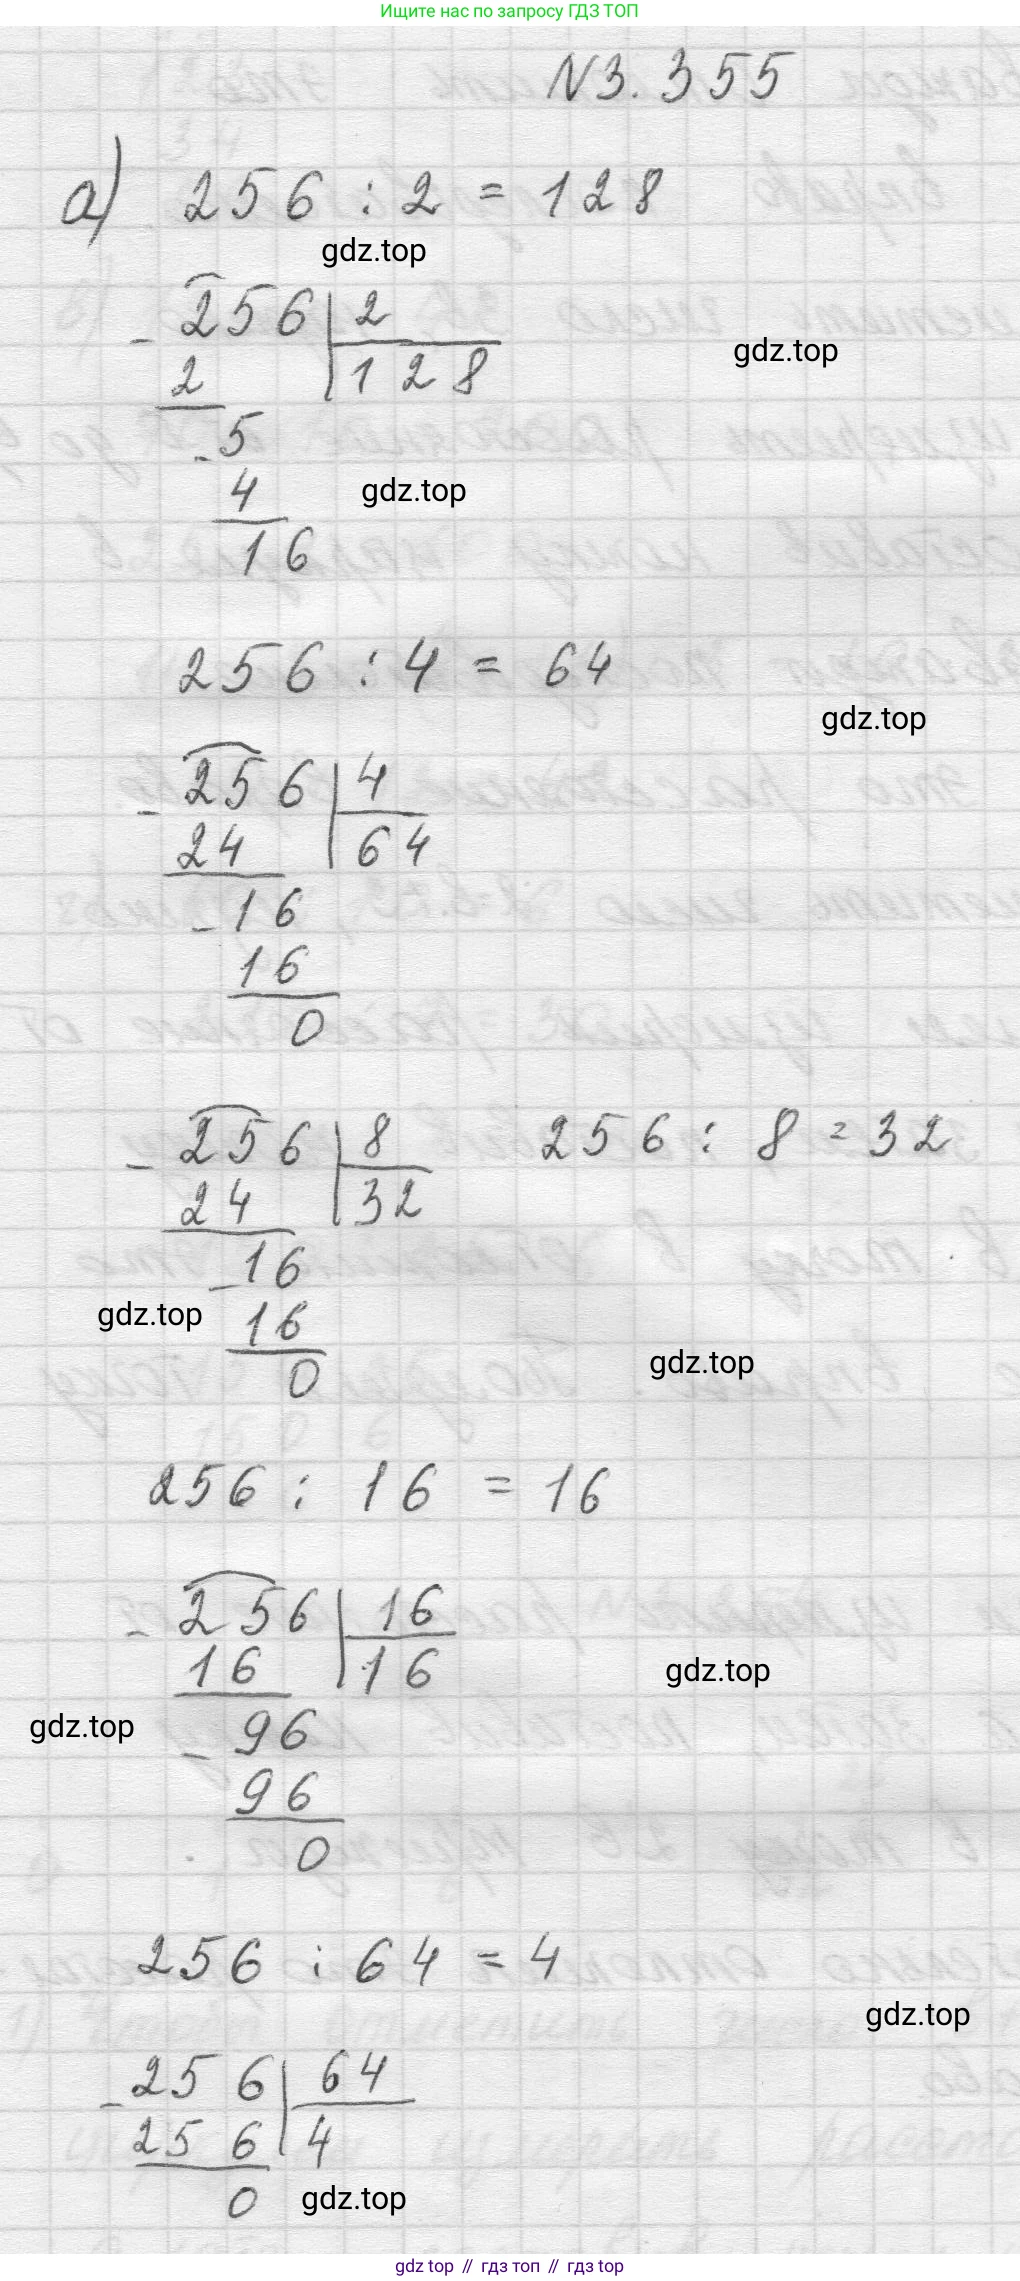 Ищите нас по запросу ГДЗ ТОП
N3.355
а) 256 : 2 = 128
gdz.top
- 256 | 2
2 | 128
gdz.top
- 5
4
gdz.top
16
256 : 4 = 64
gdz.top
- 256 | 4
24 | 64
- 16
16
0
- 256 | 8 256 : 8 = 32
24 | 32
- 16
gdz.top
16
gdz.top
0
256 : 16 = 16
- 256 | 16
16 | 16
gdz.top
gdz.top
- 96
96
0
256 : 64 = 4
gdz.top
- 256 | 64
256 | 4
0
gdz.top
gdz top // гдз топ // гдз top